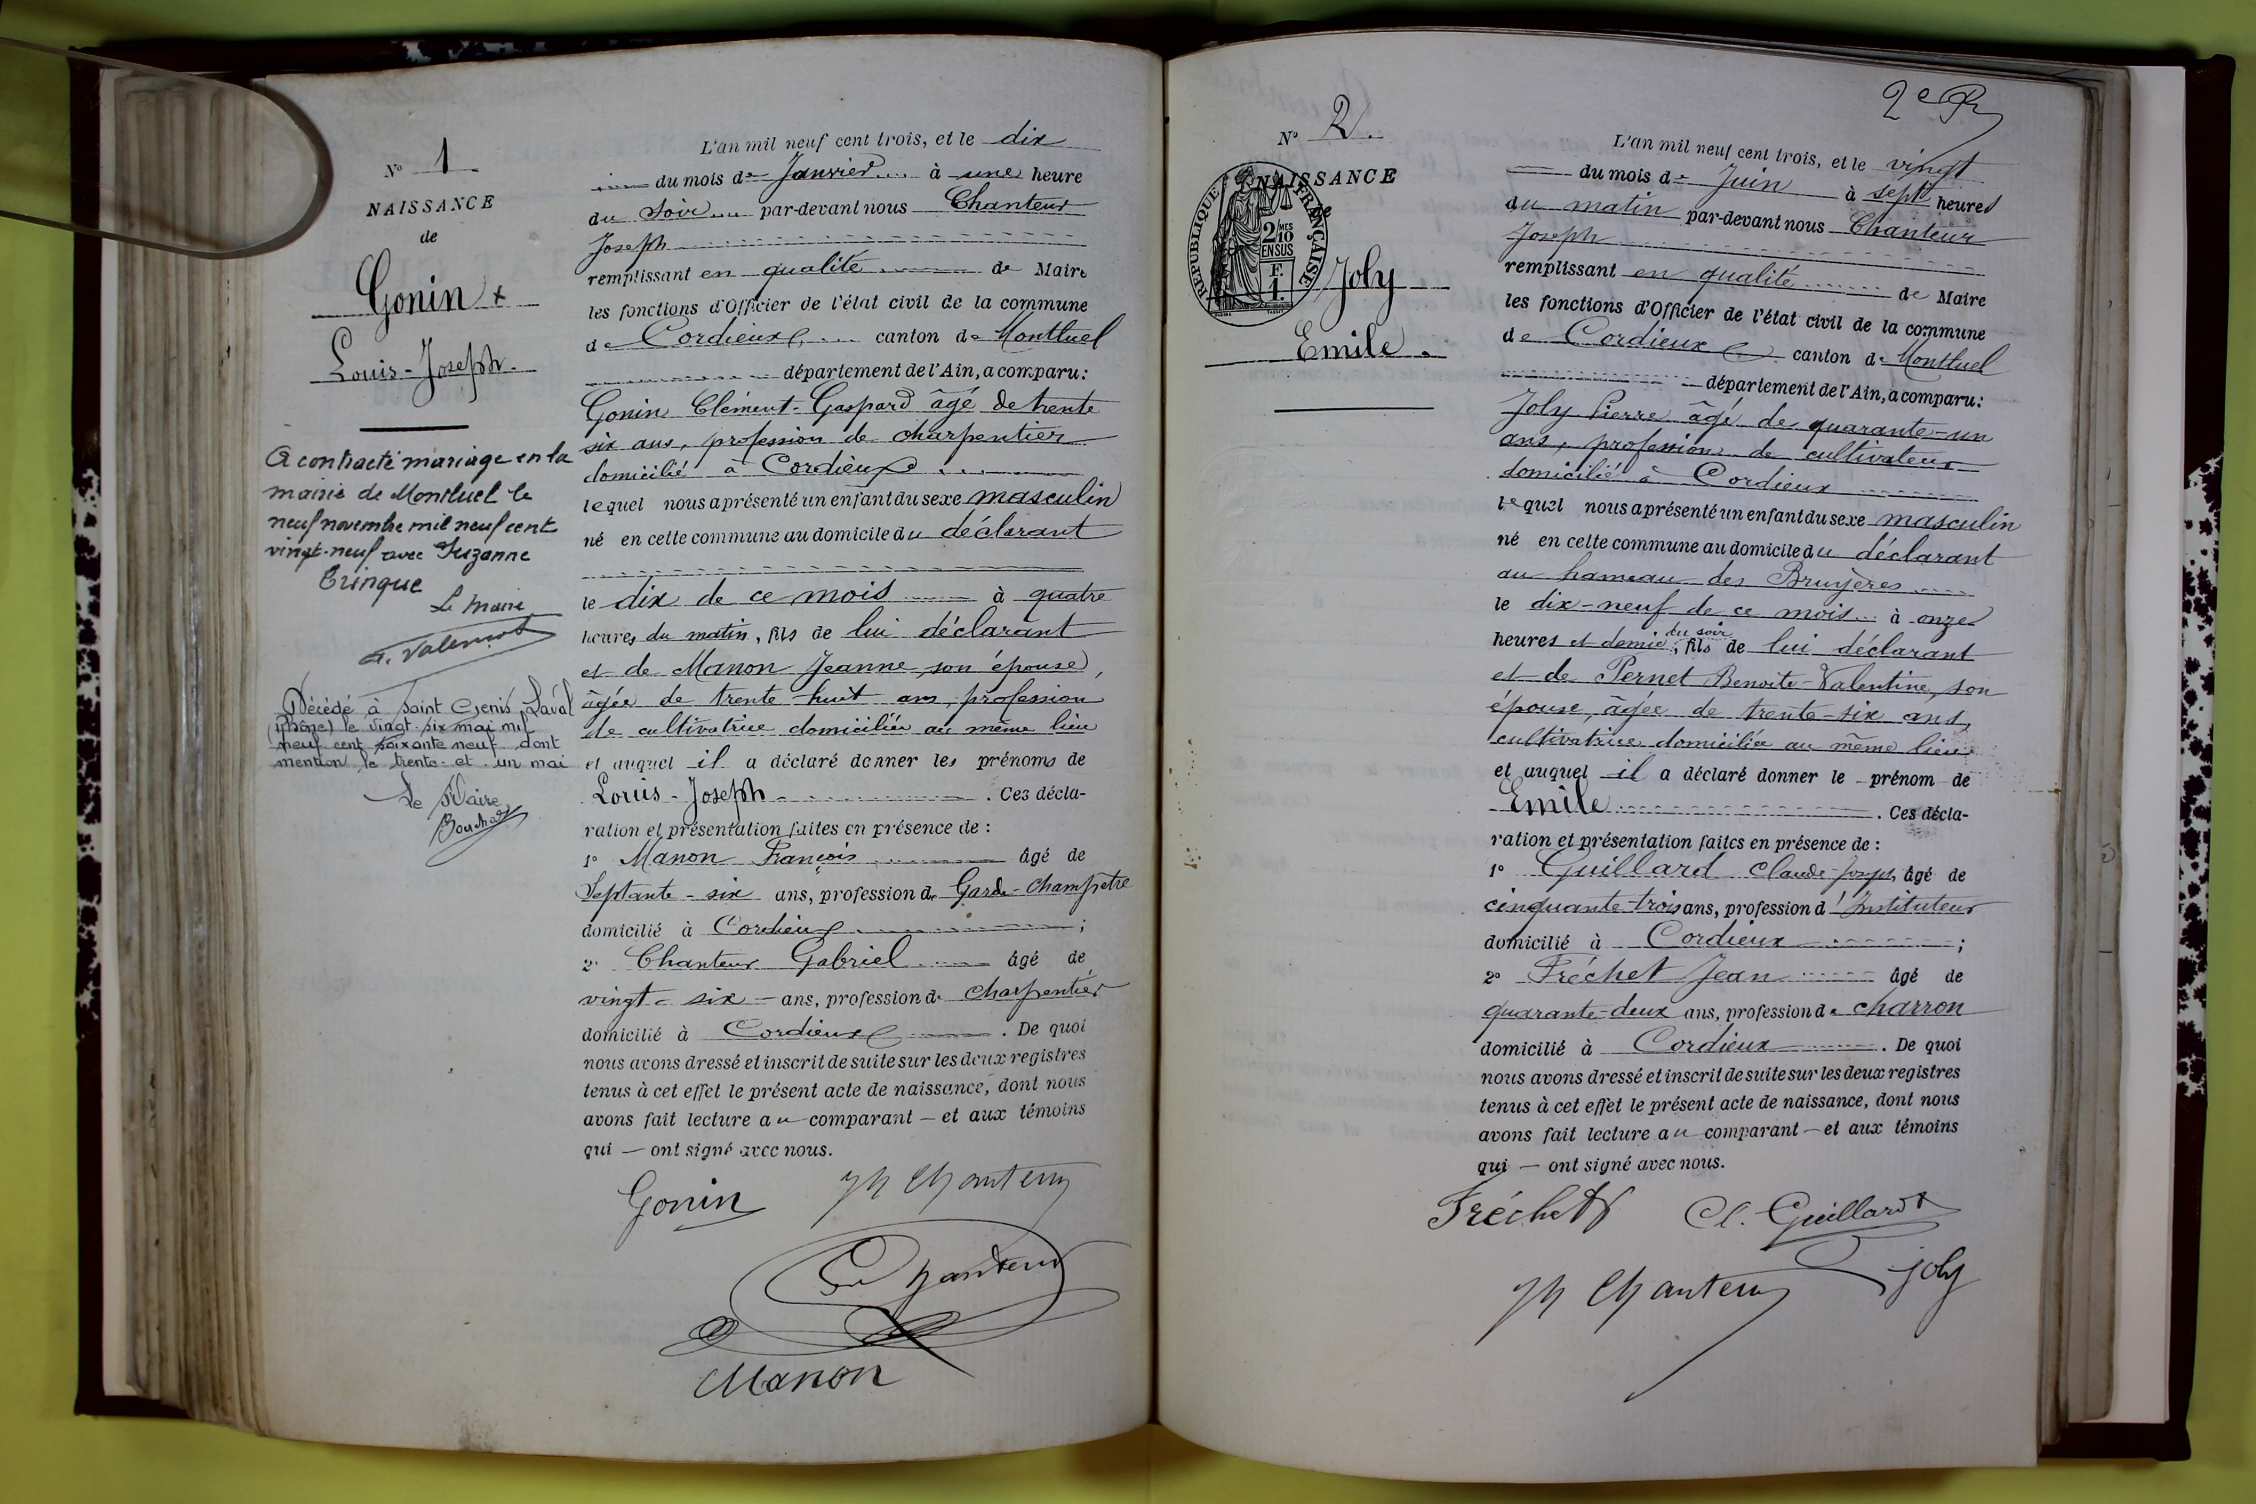 N° 1
NAISSANCE
de
Gonin
Louis-Joseph
A contracté mariage en la
mairie de Montluel le
neuf novembre mil neuf cent
vingt-neuf avec Suzanne
Trinque
Le Maire
Décédé à Saint Genis Laval
(Rhône) le vingt-six mai mil
neuf cent soixante neuf dont
mention le trente-et-un mai
Le Maire
L'an mil neuf cent trois, et le dix
du mois de Janvier à une heure
du soir par-devant nous Chanteur
Joseph
remplissant en qualité de Maire
les fonctions d'Officier de l'état civil de la commune
de Cordieux canton de Montluel
département de l'Ain, a comparu:
Gonin Clément-Gaspard âgé de trente
six ans, profession de charpentier
domicilié à Cordieux
lequel nous a présenté un enfant du sexe masculin
né en cette commune au domicile du déclarant
le dix de ce mois à quatre
heures du matin, fils de lui déclarant
et de Manon Jeanne, son épouse,
âgée de trente-huit ans, profession
de cultivatrice domiciliée au même lieu
et auquel il a déclaré donner les prénoms de
Louis-Joseph. Ces décla-
ration et présentation faites en présence de:
1° Manon François âgé de
Septante-six ans, profession de Garde-champêtre
domicilié à Cordieux;
2° Chanteur Gabriel âgé de
vingt-six ans, profession de charpentier
domicilié à Cordieux. De quoi
nous avons dressé et inscrit de suite sur les deux registres
tenus à cet effet le présent acte de naissance, dont nous
avons fait lecture au comparant — et aux témoins
qui — ont signé avec nous.
Gonin Jh Chanteur
Chanteur
Manon
2e
N° 2.
NAISSANCE
de
RÉPUBLIQUE FRANÇAISE
2/10 MES
EN SUS
F.
1.
Joly
Emile.
L'an mil neuf cent trois, et le vingt
du mois de Juin à sept heures
du matin par-devant nous Chanteur
Joseph
remplissant en qualité de Maire
les fonctions d'Officier de l'état civil de la commune
de Cordieux canton de Montluel
département de l'Ain, a comparu:
Joly Pierre âgé de quarante-un
ans, profession de cultivateur
domicilié à Cordieux
lequel nous a présenté un enfant du sexe masculin
né en cette commune au domicile du déclarant
au hameau des Bruyères
le dix-neuf de ce mois à onze
heures et demie du soir, fils de lui déclarant
et de Pernet Benoite-Valentine, son
épouse, âgée de trente-six ans,
cultivatrice domiciliée au même lieu
et auquel il a déclaré donner le prénom de
Emile. Ces décla-
ration et présentation faites en présence de:
1° Guillard Claude-Joseph âgé de
cinquante-trois ans, profession d'Instituteur
domicilié à Cordieux;
2° Fréchet Jean âgé de
quarante-deux ans, profession de charron
domicilié à Cordieux. De quoi
nous avons dressé et inscrit de suite sur les deux registres
tenus à cet effet le présent acte de naissance, dont nous
avons fait lecture au comparant — et aux témoins
qui — ont signé avec nous.
Fréchet Cl. Guillard
Jh Chanteur Joly